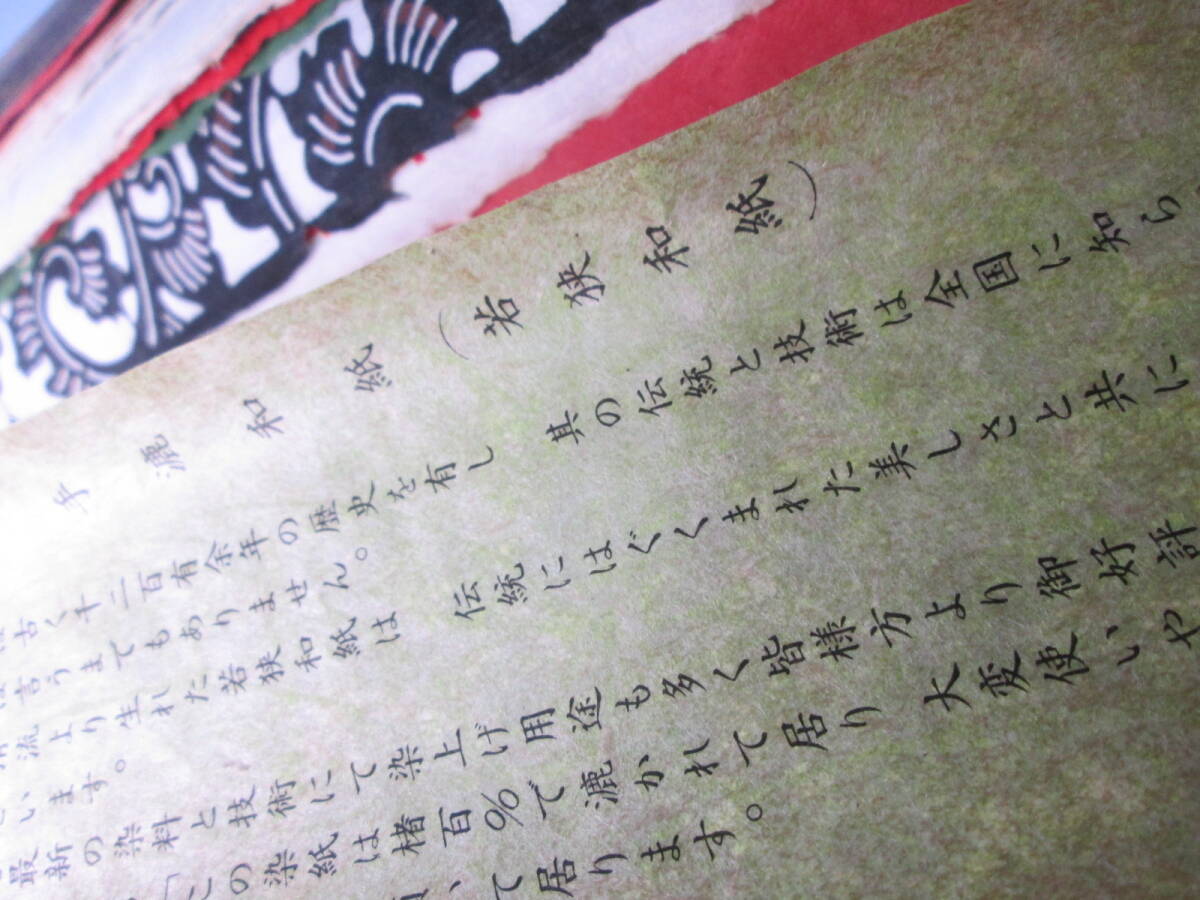 手漉和紙（若狭和紙）
古く千二百有余年の歴史を有し　其の伝統と技術は全国に知ら
は言うまでもありません。
清流より生れた若狭和紙は　伝統にはぐくまれた美しさと共に
います。
最新の染料と技術にて染上げ用途も多く皆様方より御好評
「この染紙は楮百%で漉かれて居り　大変使いや
て居ります。